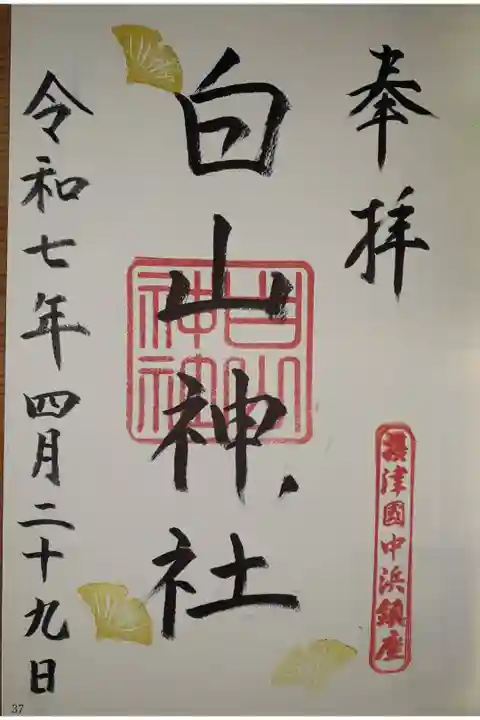 奉拝
攝津國中浜鎮座
白山神社
白山神社
令和七年四月二十九日
37